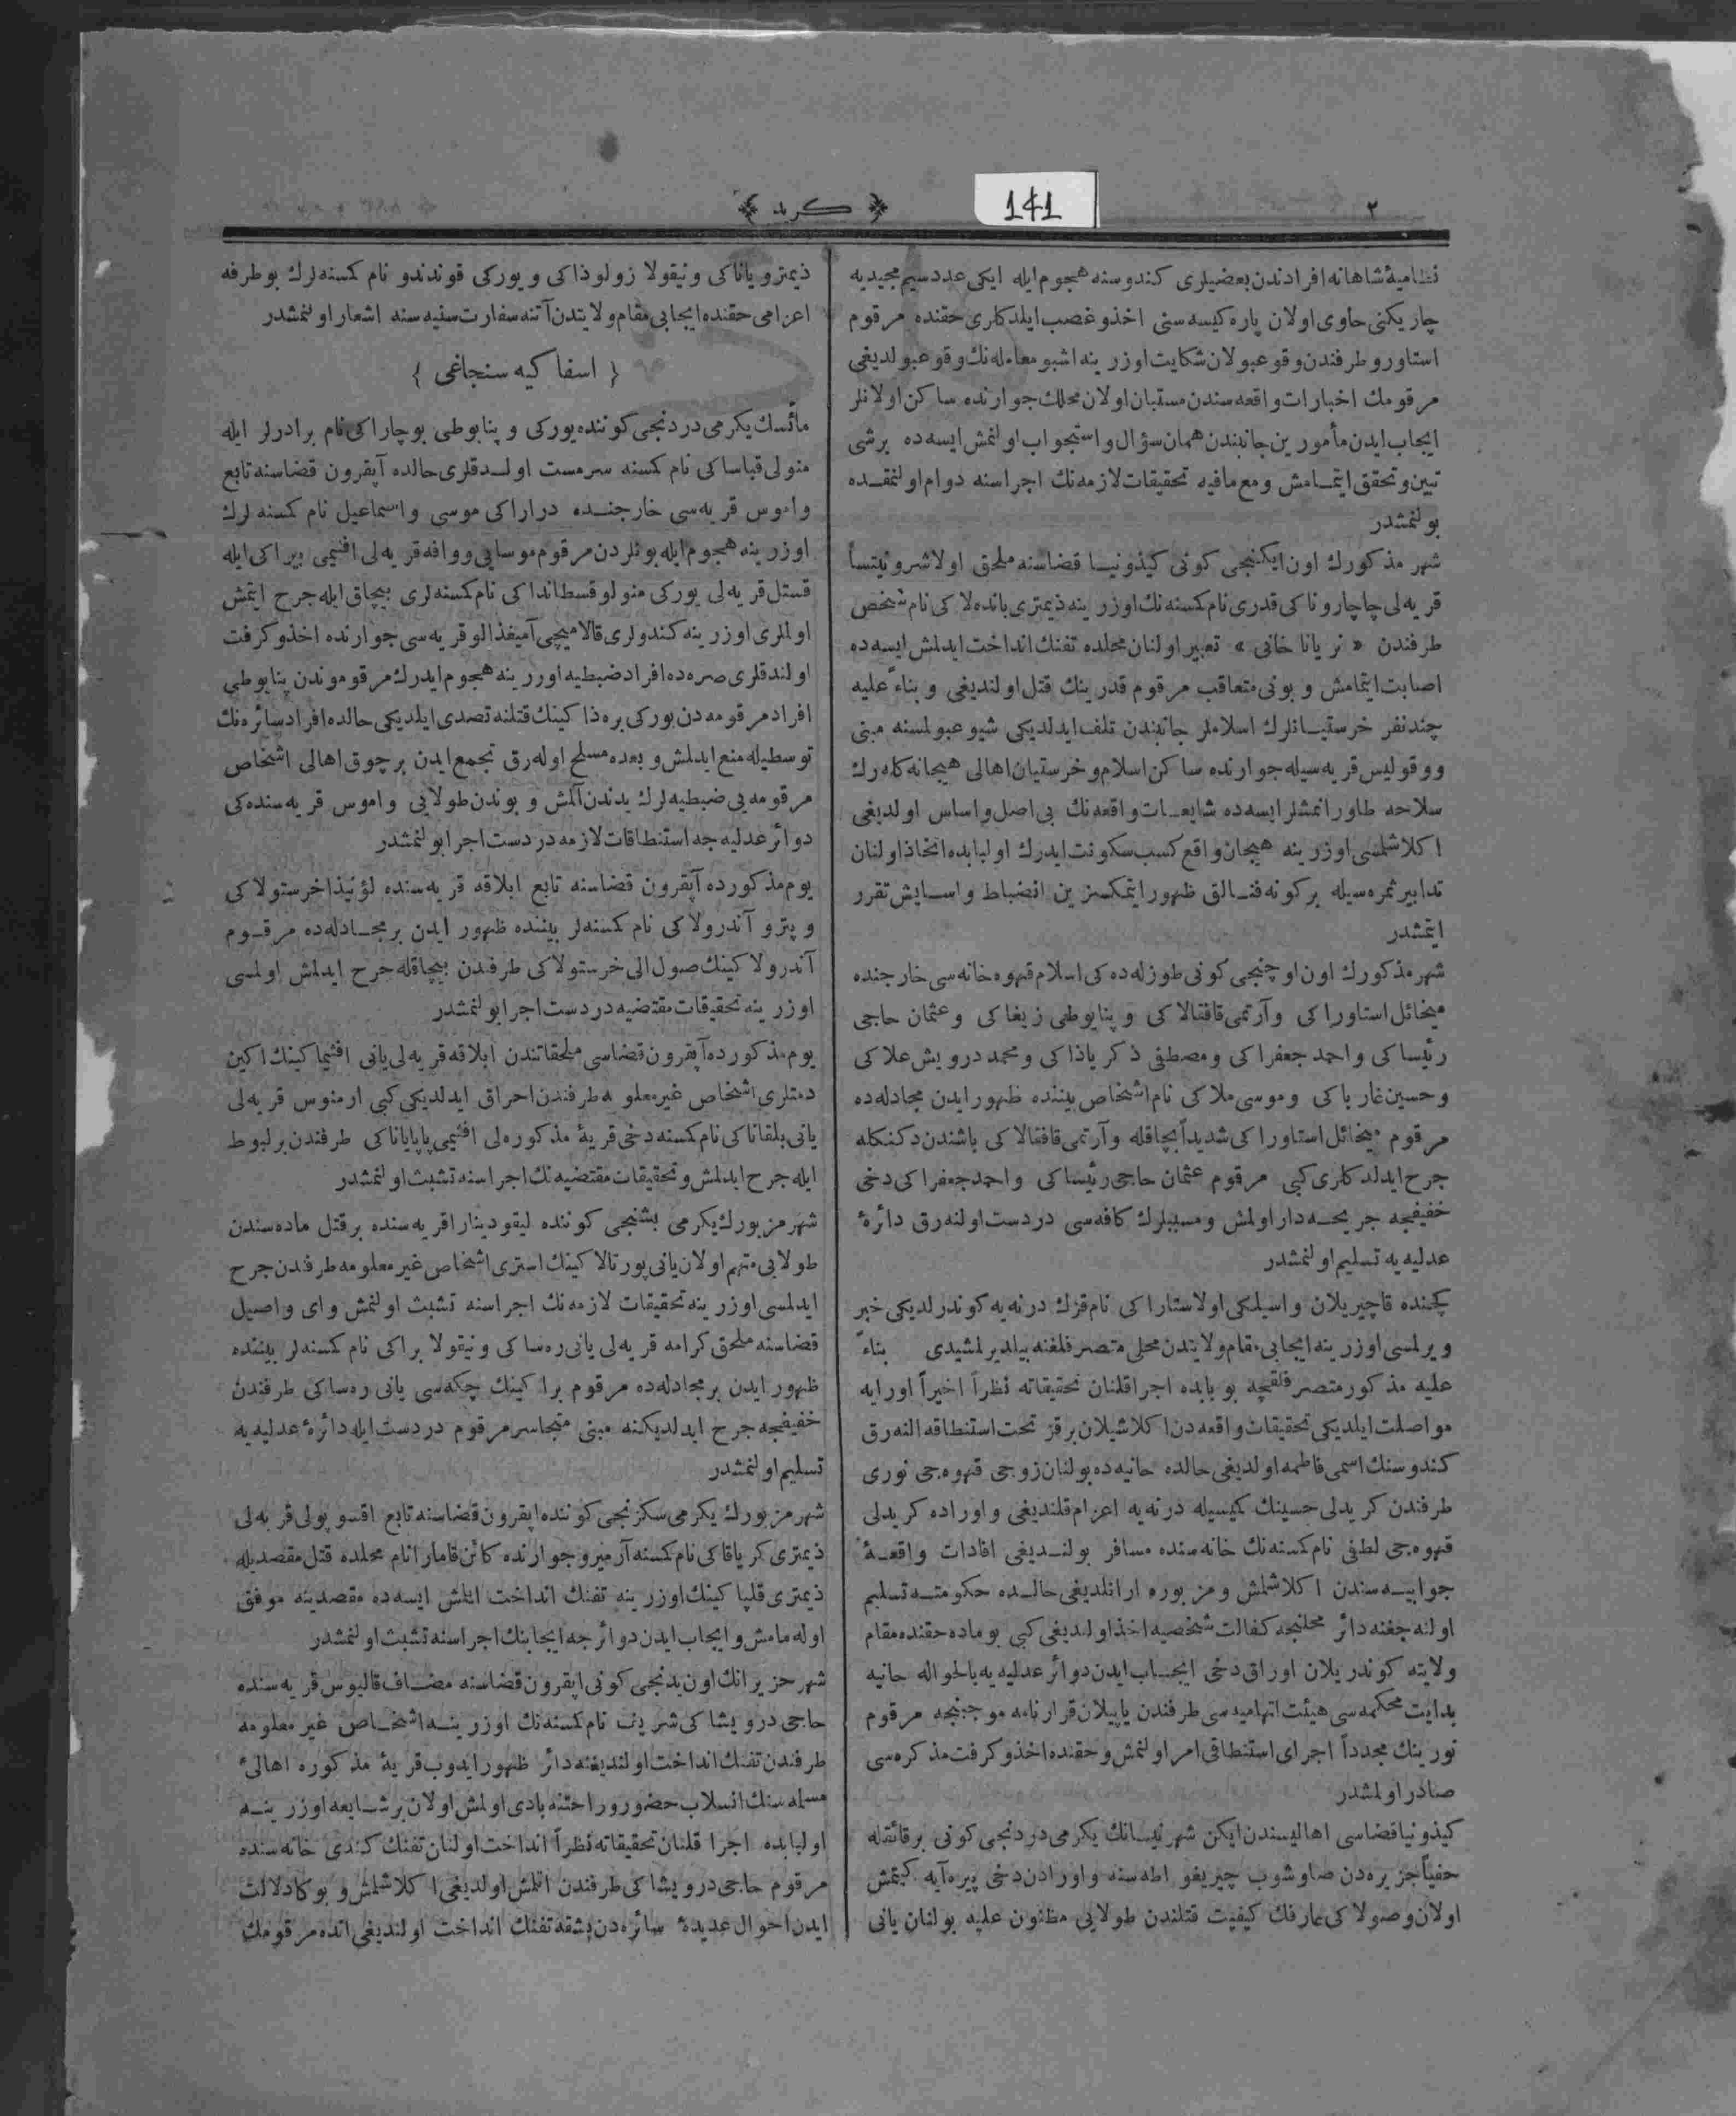 ٢
141
﴿ كريد ﴾
نظاميۀ شاهانه افرادندن بعضيلرى كندوسنه هجوم ايله ايكى عدد سيم مجيديه
چاريكنى حاوى اولان پاره كيسه سنى اخذ و غصب ايلدكلرى حقنده مرقوم
استاورو طرفندن وقوعبولان شكايت اوزرينه اشبو معامله نك وقوعبولديغى
مرقومك اخبارات واقعه سندن مستبان اولان محلك جوارنده ساكن اولانلر
ايجاب ايدن مأمورين جانبندن همان سؤال و استجواب اولنمش ايسه ده برشى
تبين و تحقق ايتمامش ومع مافيه تحقيقات لازمه نك اجراسنه دوام اولنمقده
بولنمشدر
شهر مذكورك اون ايكنجى كونى كيدونيا قضاسنه ملحق اولاشرونيتسا
قريه لى چاچاروناكى قدرى نام كسنه نك اوزرينه ذيمترى باندەلاكى نام شخص
طرفندن « تريانا خانى » تعبير اولنان محلده تفنك انداخت ايدلمش ايسه ده
اصابت ايتمامش و بونى متعاقب مرقوم قدرينك قتل اولنديغى و بناءً عليه
چند نفر خرستيانلرك اسلاملر جانبندن تلف ايدلديكى شيوعبولمسنه مبنى
ووقوليس قريه سيله جوارنده ساكن اسلام و خرستيان اهالى هيجانه كله رك
سلاحه طاورانمشلر ايسه ده شايعات واقعه نك بى اصل و اساس اولديغى
اكلاشلمسى اوزرينه هيجان واقع كسب سكونت ايدرك اوليابده اتخاذ اولنان
تدابير ثمره سيله بر كونه فنالق ظهور ايتمكسزين انضباط و اسايش تقرر
ايتمشدر
شهر مذكورك اون اوچنجى كونى طوزله ده كى اسلام قهوه خانه سى خارجنده
ميخائل استاوراكى و آرتمى قافتالاكى و پنايوطى زيغاكى و عثمان حاجى
رئيساكى و احمد جعفراكى و مصطفى ذكرياذاكى و محمد درويش علاكى
و حسين غارياكى و موسى ملاكى نام اشخاص بيننده ظهور ايدن مجادله ده
مرقوم ميخائل استاوراكى شديداً بچاقله و آرتمى قافتالاكى باشندن دكنكله
جرح ايدلدكلرى كبى مرقوم عثمان حاجى رئيساكى و احمد جعفراكى دخى
خفيفجه جريحه دار اولمش و مسببلرك كافه سى دردست اولنه رق دائرۀ
عدليه يه تسليم اولنمشدر
كچنده قاچيريلان واسيلكى اولاستاراكى نام قزك درنه يه كوندرلديكى خبر
ويرلمسى اوزرينه ايجابى مقام ولايتدن محلى متصرفلغنه بيلديرلمشيدى بناءً
عليه مذكور متصرفلقجه بو بابده اجرا قلنان تحقيقاته نظراً اخيراً اورايه
مواصلت ايلديكى تحقيقات واقعه دن اكلاشيلان بر قز تحت استنطاقه النه رق
كندوسنك اسمى فاطمه اولديغى حالده حانيه ده بولنان زوجى قهوه جى نورى
طرفندن كريدلى حسينك كميسيله درنه يه اعزام قلنديغى و اوراده كريدلى
قهوه جى لطفى نام كسنه نك خانه سنده مسافر بولنديغى افادات واقعۀ
جوابيه سندن اكلاشلمش و مزبوره ارانلديغى حالده حكومته تسليم
اولنه جغنه دائر محلنجه كفالت شخصيه اخذ اولنديغى كبى بو ماده حقنده مقام
ولايته كوندريلان اوراق دخى ايجاب ايدن دوائر عدليه يه بالحواله حانيه
بدايت محكمه سى هيئت اتهاميه سى طرفندن ياپيلان قرارنامه موجبنجه مرقوم
نورينك مجدداً اجراى استنطاقى امر اولنمش و حقنده اخذ و كرفت مذكره سى
صادر اولمشدر
كيذونيا قضاسى اهاليسندن ايكن شهر نيسانك يكرمى دردنجى كونى بر قائقله
خفياً جزيره دن صاوشوب چيريغو اطه سنه و اورادن دخى پيره آيه كيتمش
اولان وصولاكى عارفك كيفيت قتلندن طولايى مظنون عليه بولنان يانى
ذيمترويااناكى و نيقولا زولوذاكى و يوركى قوندندو نام كسنه لرك بو طرفه
اعزامى حقنده ايجابى مقام ولايتدن آتنه سفارت سنيه سنه اشعار اولنمشدر
{ اسفاكيه سنجاغى }
مائسك يكرمى دردنجى كوننده يوركى و پنايوطى بوچاراكى نام برادرلر ايله
منولى قباساكى نام كسنه سرمست اولدقلرى حالده آپقرون قضاسنه تابع
واموس قريه سى خارجنده دراراكى موسى و اسماعيل نام كسنه لرك
اوزرينه هجوم ايله بونلردن مرقوم موسايى ووافه قريه لى افتيمى بيراكى ايله
قستل قريه لى يوركى منولو قسطانداكى نام كسنه لرى بيچاق ايله جرح ايتمش
اولملرى اوزرينه كندولرى قالاميچى آميغذالو قريه سى جوارنده اخذ و كرفت
اولندقلرى صره ده افراد ضبطيه اوزرينه هجوم ايدرك مرقوموندن پنايوطى
افراد مرقومه دن يوركى بره ذاكينك قتلنه تصدى ايلديكى حالده افراد سائره نك
توسطيله منع ايدلمش و بعده مسلح اوله رق تجمع ايدن برچوق اهالى اشخاص
مرقومه يى ضبطيه لرك يدندن آلمش و بوندن طولايى واموس قريه سنده كى
دوائر عدليه جه استنطاقات لازمه دردست اجرا بولنمشدر
يوم مذكورده آپقرون قضاسنه تابع ابلاقه قريه سنده لؤنيذا خرستولاكى
و پترو آندرولاكى نام كسنه لر بيننده ظهور ايدن بر مجادله ده مرقوم
آندرولاكينك صول الى خرستولاكى طرفندن بيچاقله جرح ايدلمش اولمسى
اوزرينه تحقيقات مقتضيه دردست اجرا بولنمشدر
يوم مذكورده آپقرون قضاسى ملحقاتندن ابلاقه قريه لى يانى افتيماكينك اكين
دمتلرى اشخاص غير معلومه طرفندن احراق ايدلديكى كبى ارمنوس قريه لى
يانى بلقاناكى نام كسنه دخى قريۀ مذكوره لى افتيمى پاپاياناكى طرفندن بر لبوط
ايله جرح ايدلمش و تحقيقات مقتضيه نك اجراسنه تشبث اولنمشدر
شهر مزبورك يكرمى بشنجى كوننده ليقودينارا قريه سنده بر قتل ماده سندن
طولايى متهم اولان يانى پورتالاكينك استرى اشخاص غير معلومه طرفندن جرح
ايدلمسى اوزرينه تحقيقات لازمه نك اجراسنه تشبث اولنمش و اى واصيل
قضاسنه ملحق كرامه قريه لى يانى ره ساكى و نيقولا براكى نام كسنه لر بيننده
ظهور ايدن بر مجادله ده مرقوم براكينك چكه سى يانى ره ساكى طرفندن
خفيفجه جرح ايدلديكنه مبنى متجاسر مرقوم دردست ايله دائرۀ عدليه يه
تسليم اولنمشدر
شهر مزبورك يكرمى سكزنجى كوننده اپقرون قضاسنه تابع اقسوپولى قريه لى
ذيمترى كرياقاكى نام كسنه آرميرو جوارنده كائن قامارا نام محلده قتل مقصديله
ذيمترى قلپاكينك اوزرينه تفنك انداخت ايتمش ايسه ده مقصدينه موفق
اوله مامش و ايجاب ايدن دوائرجه ايجابنك اجراسنه تشبث اولنمشدر
شهر حزيرانك اون يدنجى كونى اپقرون قضاسنه مضاف قاليوس قريه سنده
حاجى درويشاكى شريف نام كسنه نك اوزرينه اشخاص غير معلومه
طرفندن تفنك انداخت اولنديغنه دائر ظهور ايدوب قريۀ مذكوره اهالئ
مسلمه سنك انسلاب حضور و راحتنه بادى اولمش اولان بر شايعه اوزرينه
اوليابده اجرا قلنان تحقيقاته نظراً انداخت اولنان تفنك كندى خانه سنده
مرقوم حاجى درويشاكى طرفندن اتلمش اولديغى اكلاشلمش و بوكا دلالت
ايدن احوال عديدۀ سائره دن بشقه تفنك انداخت اولنديغى انده مرقومك